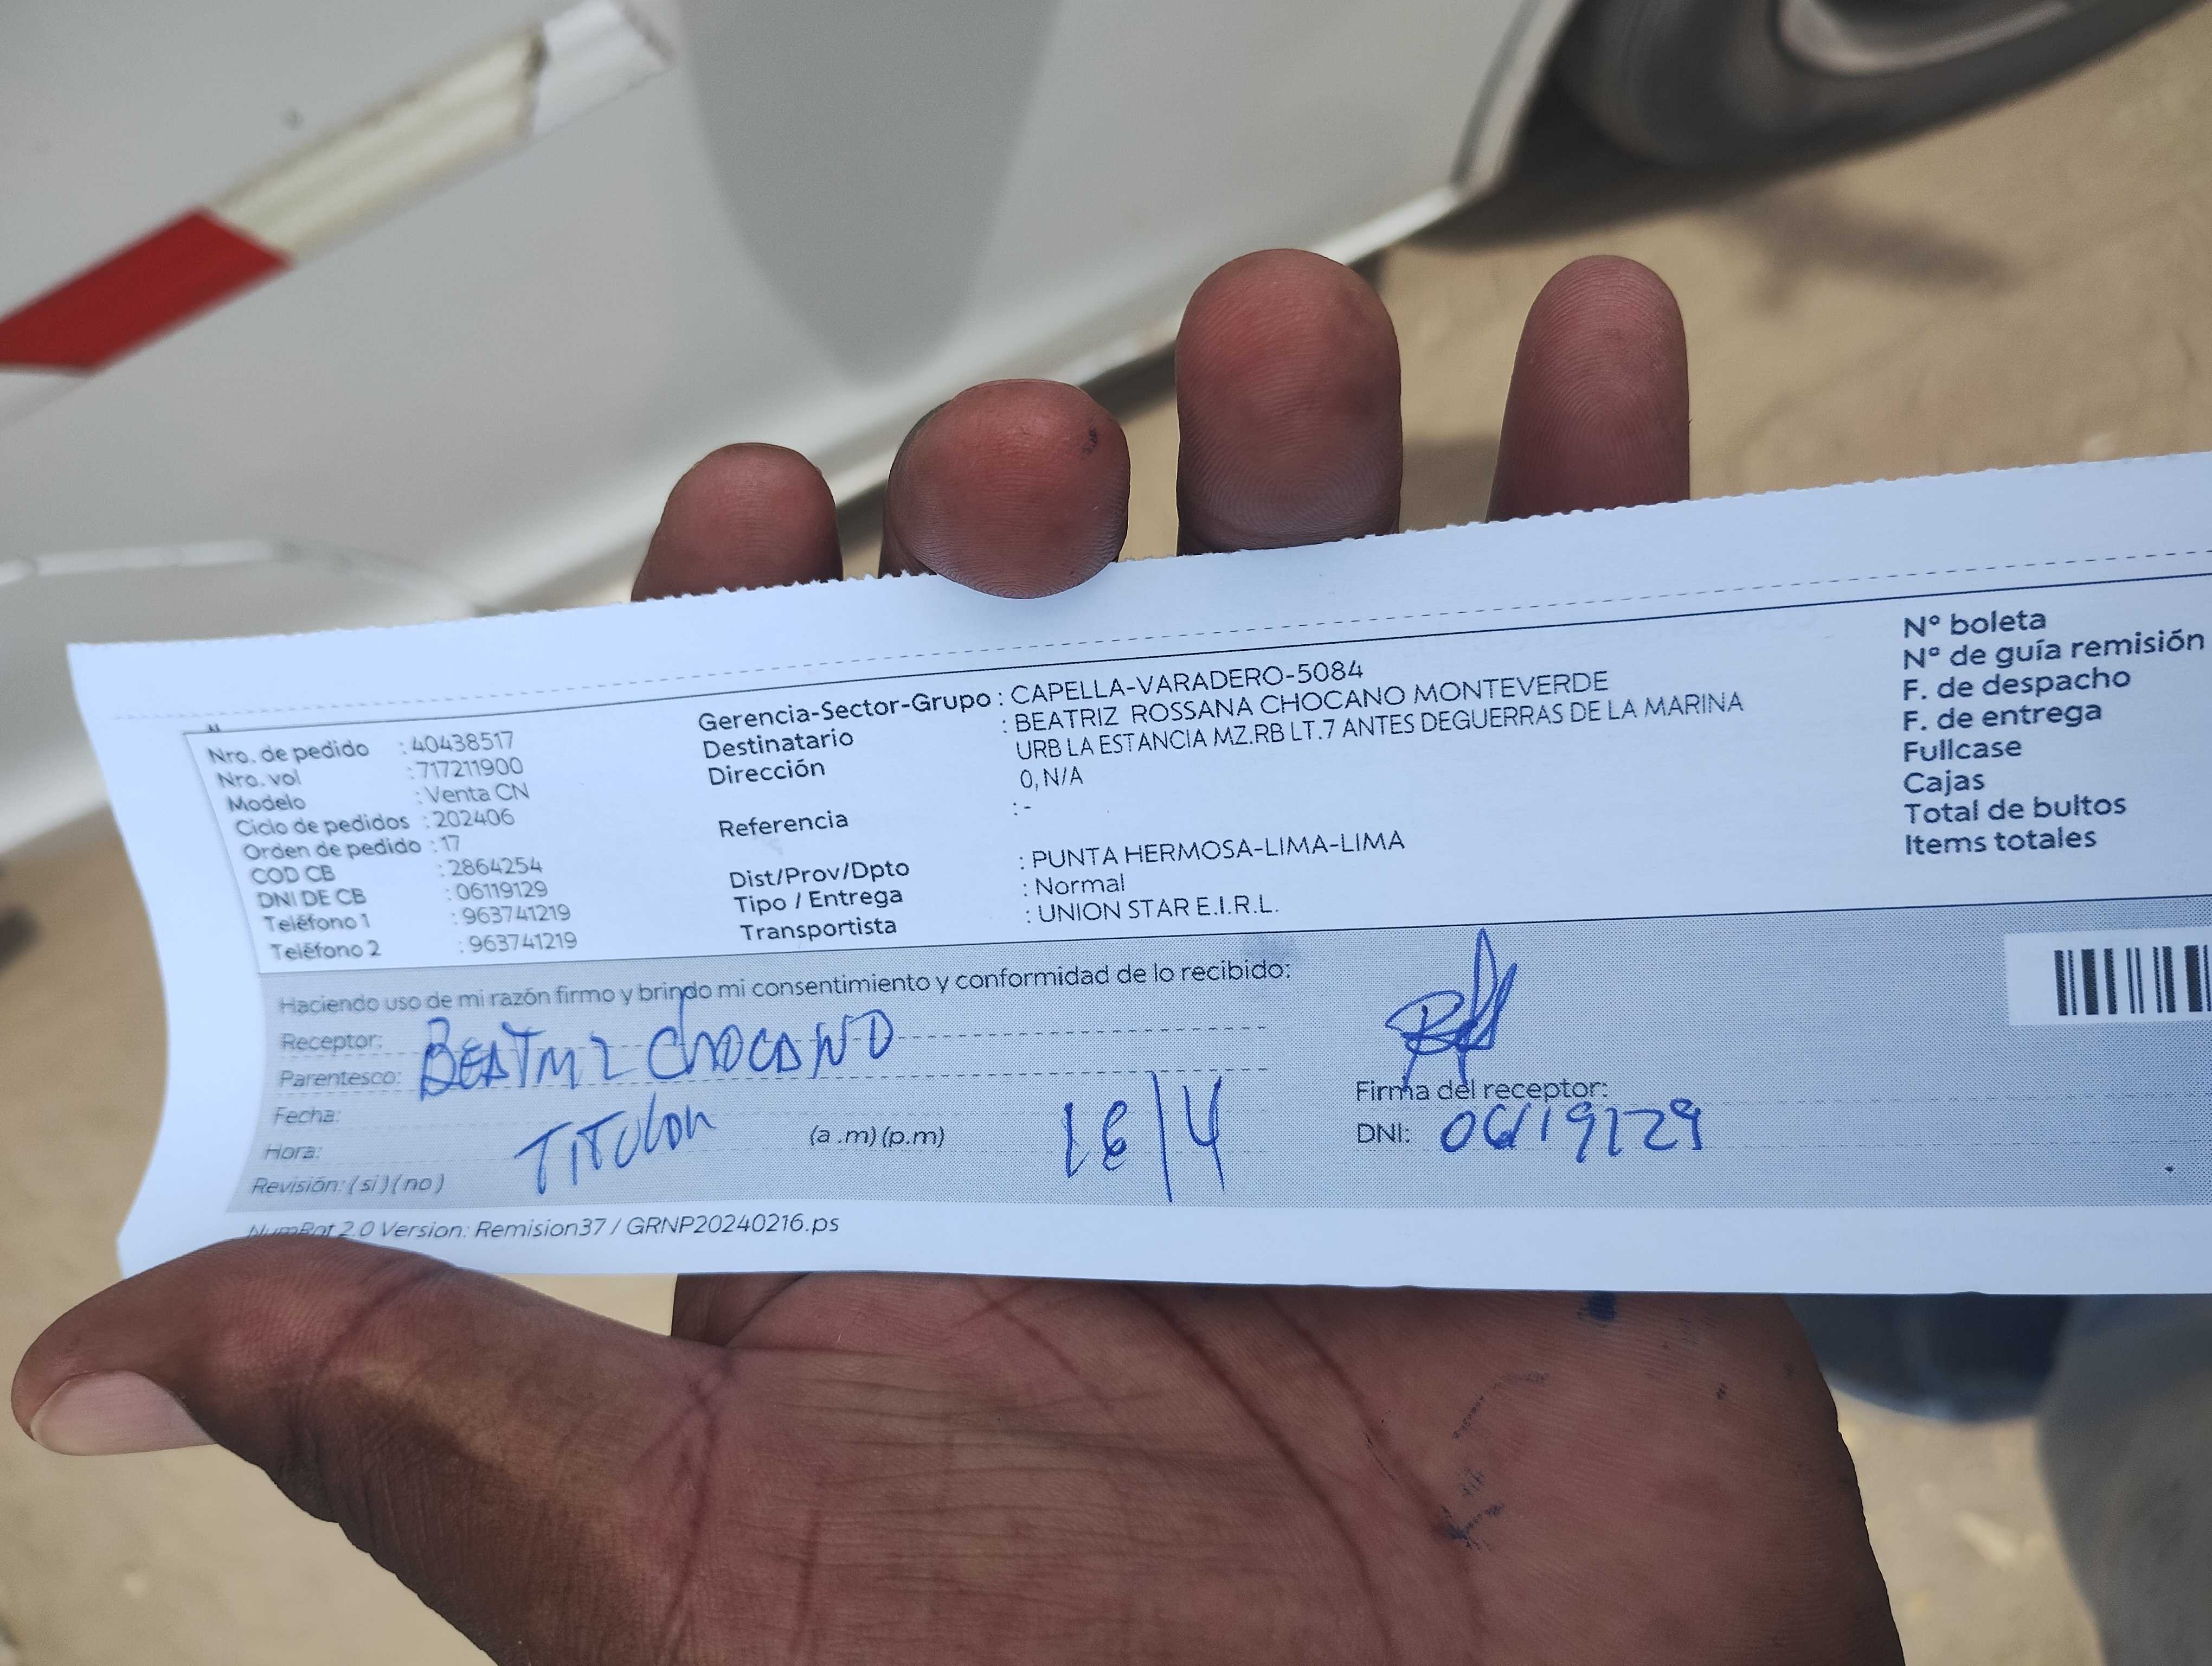 Nro. de pedido : 40438517
Nro. vol : 717211900
Modelo : Venta CN
Ciclo de pedidos : 202406
Orden de pedido : 17
COD CB : 2864254
DNI DE CB : 06119129
Teléfono 1 : 963741219
Teléfono 2 : 963741219
Gerencia-Sector-Grupo : CAPELLA-VARADERO-5084
Destinatario : BEATRIZ ROSSANA CHOCANO MONTEVERDE
Dirección URB LA ESTANCIA MZ.RB LT.7 ANTES DEGUERRAS DE LA MARINA
0, N/A
Referencia : -
Dist/Prov/Dpto : PUNTA HERMOSA-LIMA-LIMA
Tipo / Entrega : Normal
Transportista : UNION STAR E.I.R.L.
N° boleta
N° de guía remisión
F. de despacho
F. de entrega
Fullcase
Cajas
Total de bultos
Items totales
Haciendo uso de mi razón firmo y brindo mi consentimiento y conformidad de lo recibido:
Receptor: BEATRIZ CHOCANO
Parentesco:
Fecha: TITULAR 16/4
Hora: (a.m) (p.m)
Revisión: ( si ) ( no )
Firma del receptor:
DNI: 06119129
NumBat 2.0 Version: Remision37 / GRNP20240216.ps